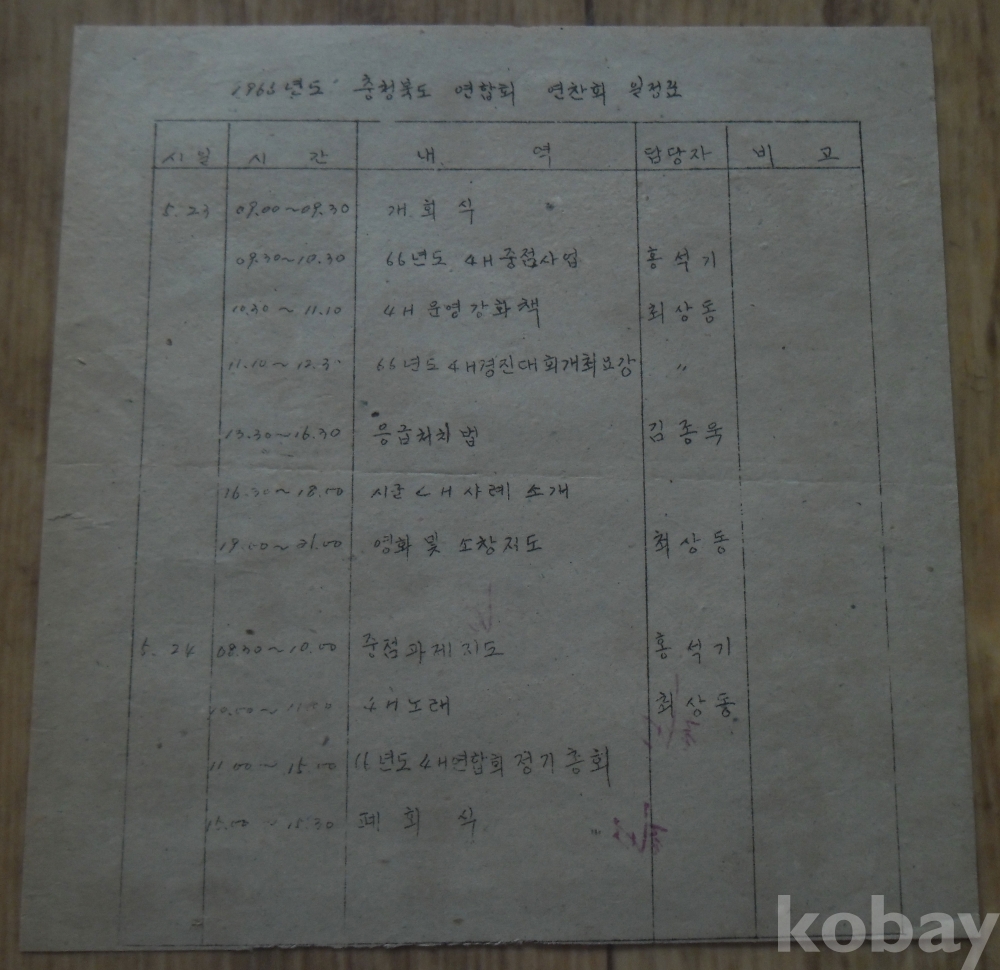 년도 충청북도 연합회 연찬회 일정표
시일 시 간 내 역 담당자 비 고
5. 23 09.00~09.30 개 회 식
09.30~10.30 66년도 4H중점사업 홍석기
10.30~11.10 4H운영강화책 최상동
11.10~12.30 66년도4H경진대회개최요강 〃
13.30~16.30 응급처치법 김종욱
16.30~18.00 시군4H사례소개
19.00~21.00 영화및 소창지도 최상동
5. 24 08.30~10.00 중점과제지도 홍석기
4H노래 최상동
11.00~15.00 66년도4H연합회정기총회
15.00~15.30 폐 회 식
kobay